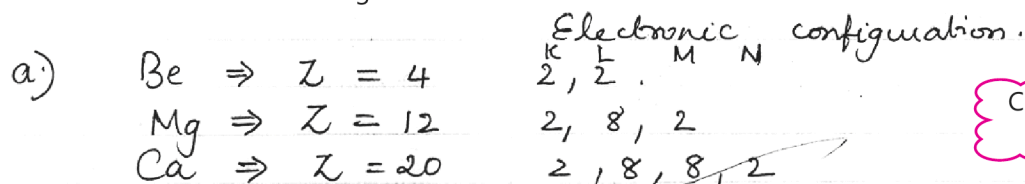 Electronic configuration.
K L M N
a.) Be ⇒ Z = 4 2, 2.
Mg ⇒ Z = 12 2, 8, 2
Ca ⇒ Z = 20 2, 8, 8, 2
C